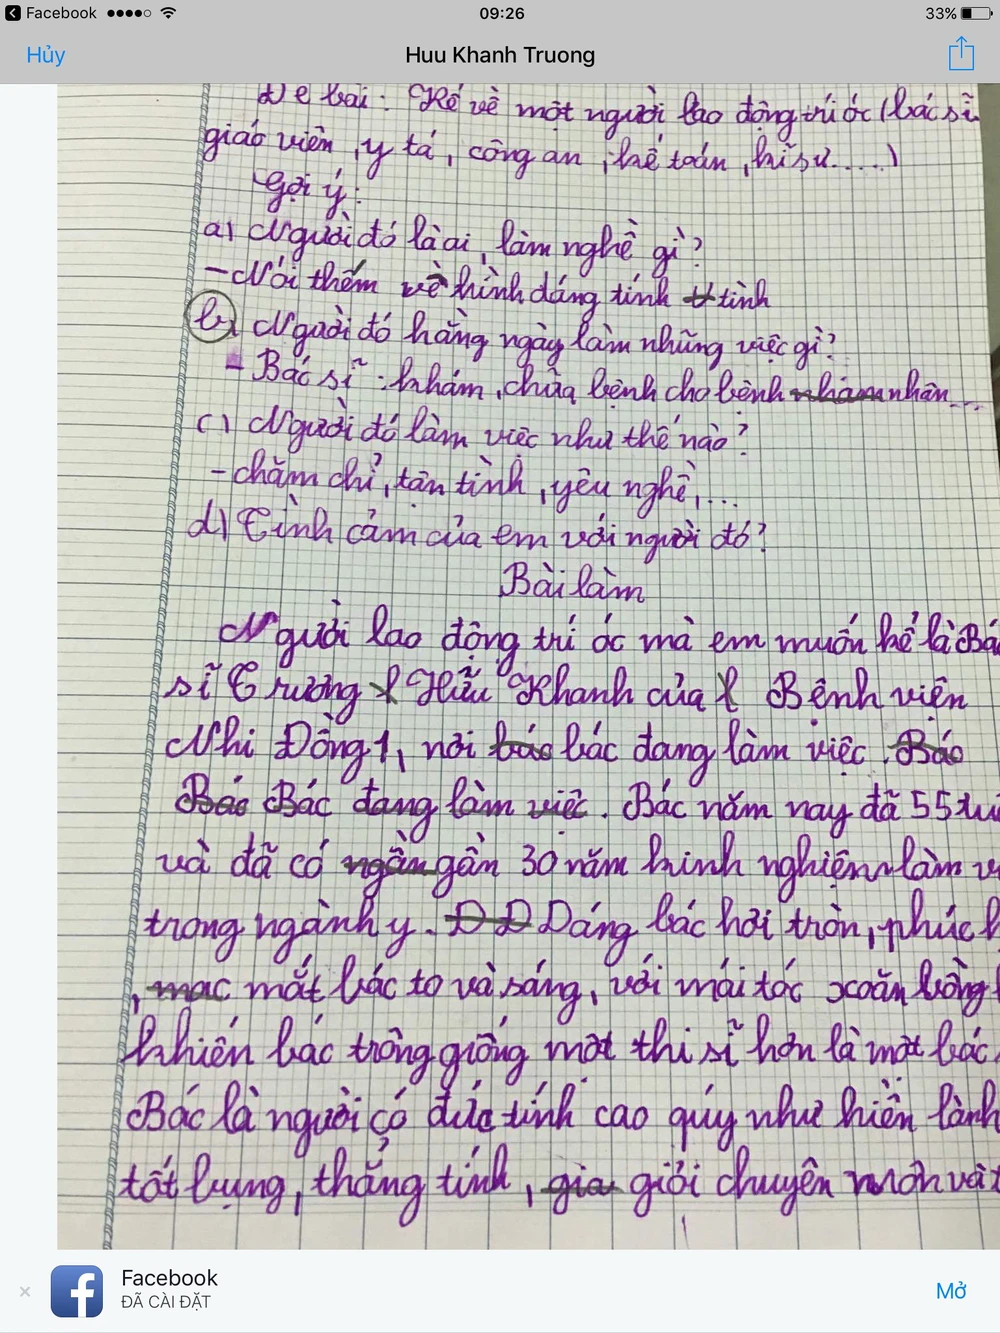 Facebook 09:26 33%
Hủy Huu Khanh Truong
Đề bài: Kể về một người lao động trí óc (bác sĩ
giáo viên, y tá, công an, kế toán, kĩ sư.....)
Gợi ý:
a) Người đó là ai, làm nghề gì?
- Nói thêm về hình dáng tính tình
b) Người đó hằng ngày làm những việc gì?
- Bác sĩ: khám, chữa bệnh cho bệnh nhân...
c) Người đó làm việc như thế nào?
- chăm chỉ, tận tình, yêu nghề,...
d) Tình cảm của em với người đó?
Bài làm
Người lao động trí óc mà em muốn kể là Bá
sĩ Trương Hữu Khanh của Bệnh viện
Nhi Đồng 1, nơi bác bác đang làm việc. Bác
Bác Bác đang làm việc. Bác năm nay đã 55 tu
và đã có ngần gần 30 năm kinh nghiệm làm v
trong ngành y. D D Dáng bác hơi tròn, phúc h
, mac mắt bác to và sáng, với mái tóc xoăn bồng
khiến bác trông giống một thi sĩ hơn là một bác
Bác là người có đức tính cao quý như hiền lành
tốt bụng, thẳng tính, gia giỏi chuyên môn và t
Facebook
ĐÃ CÀI ĐẶT
Mở